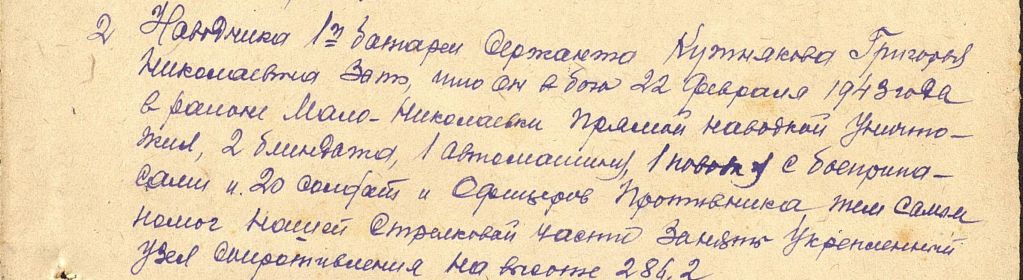 2 Наводчика 1й батареи Сержанта Кутнякова Григория
Николаевича Зато, что он в бою 22 февраля 1943 года
в районе Мало-Николаевки прямой наводкой уничто-
жил, 2 блиндажа, 1 автомашину, 1 повозку с боеприпа-
сами и 20 солдат и Офицеров Противника, тем самым
помог нашей Стрелковой части Занять Укрепленный
узел Сопротивления на высоте 286,2